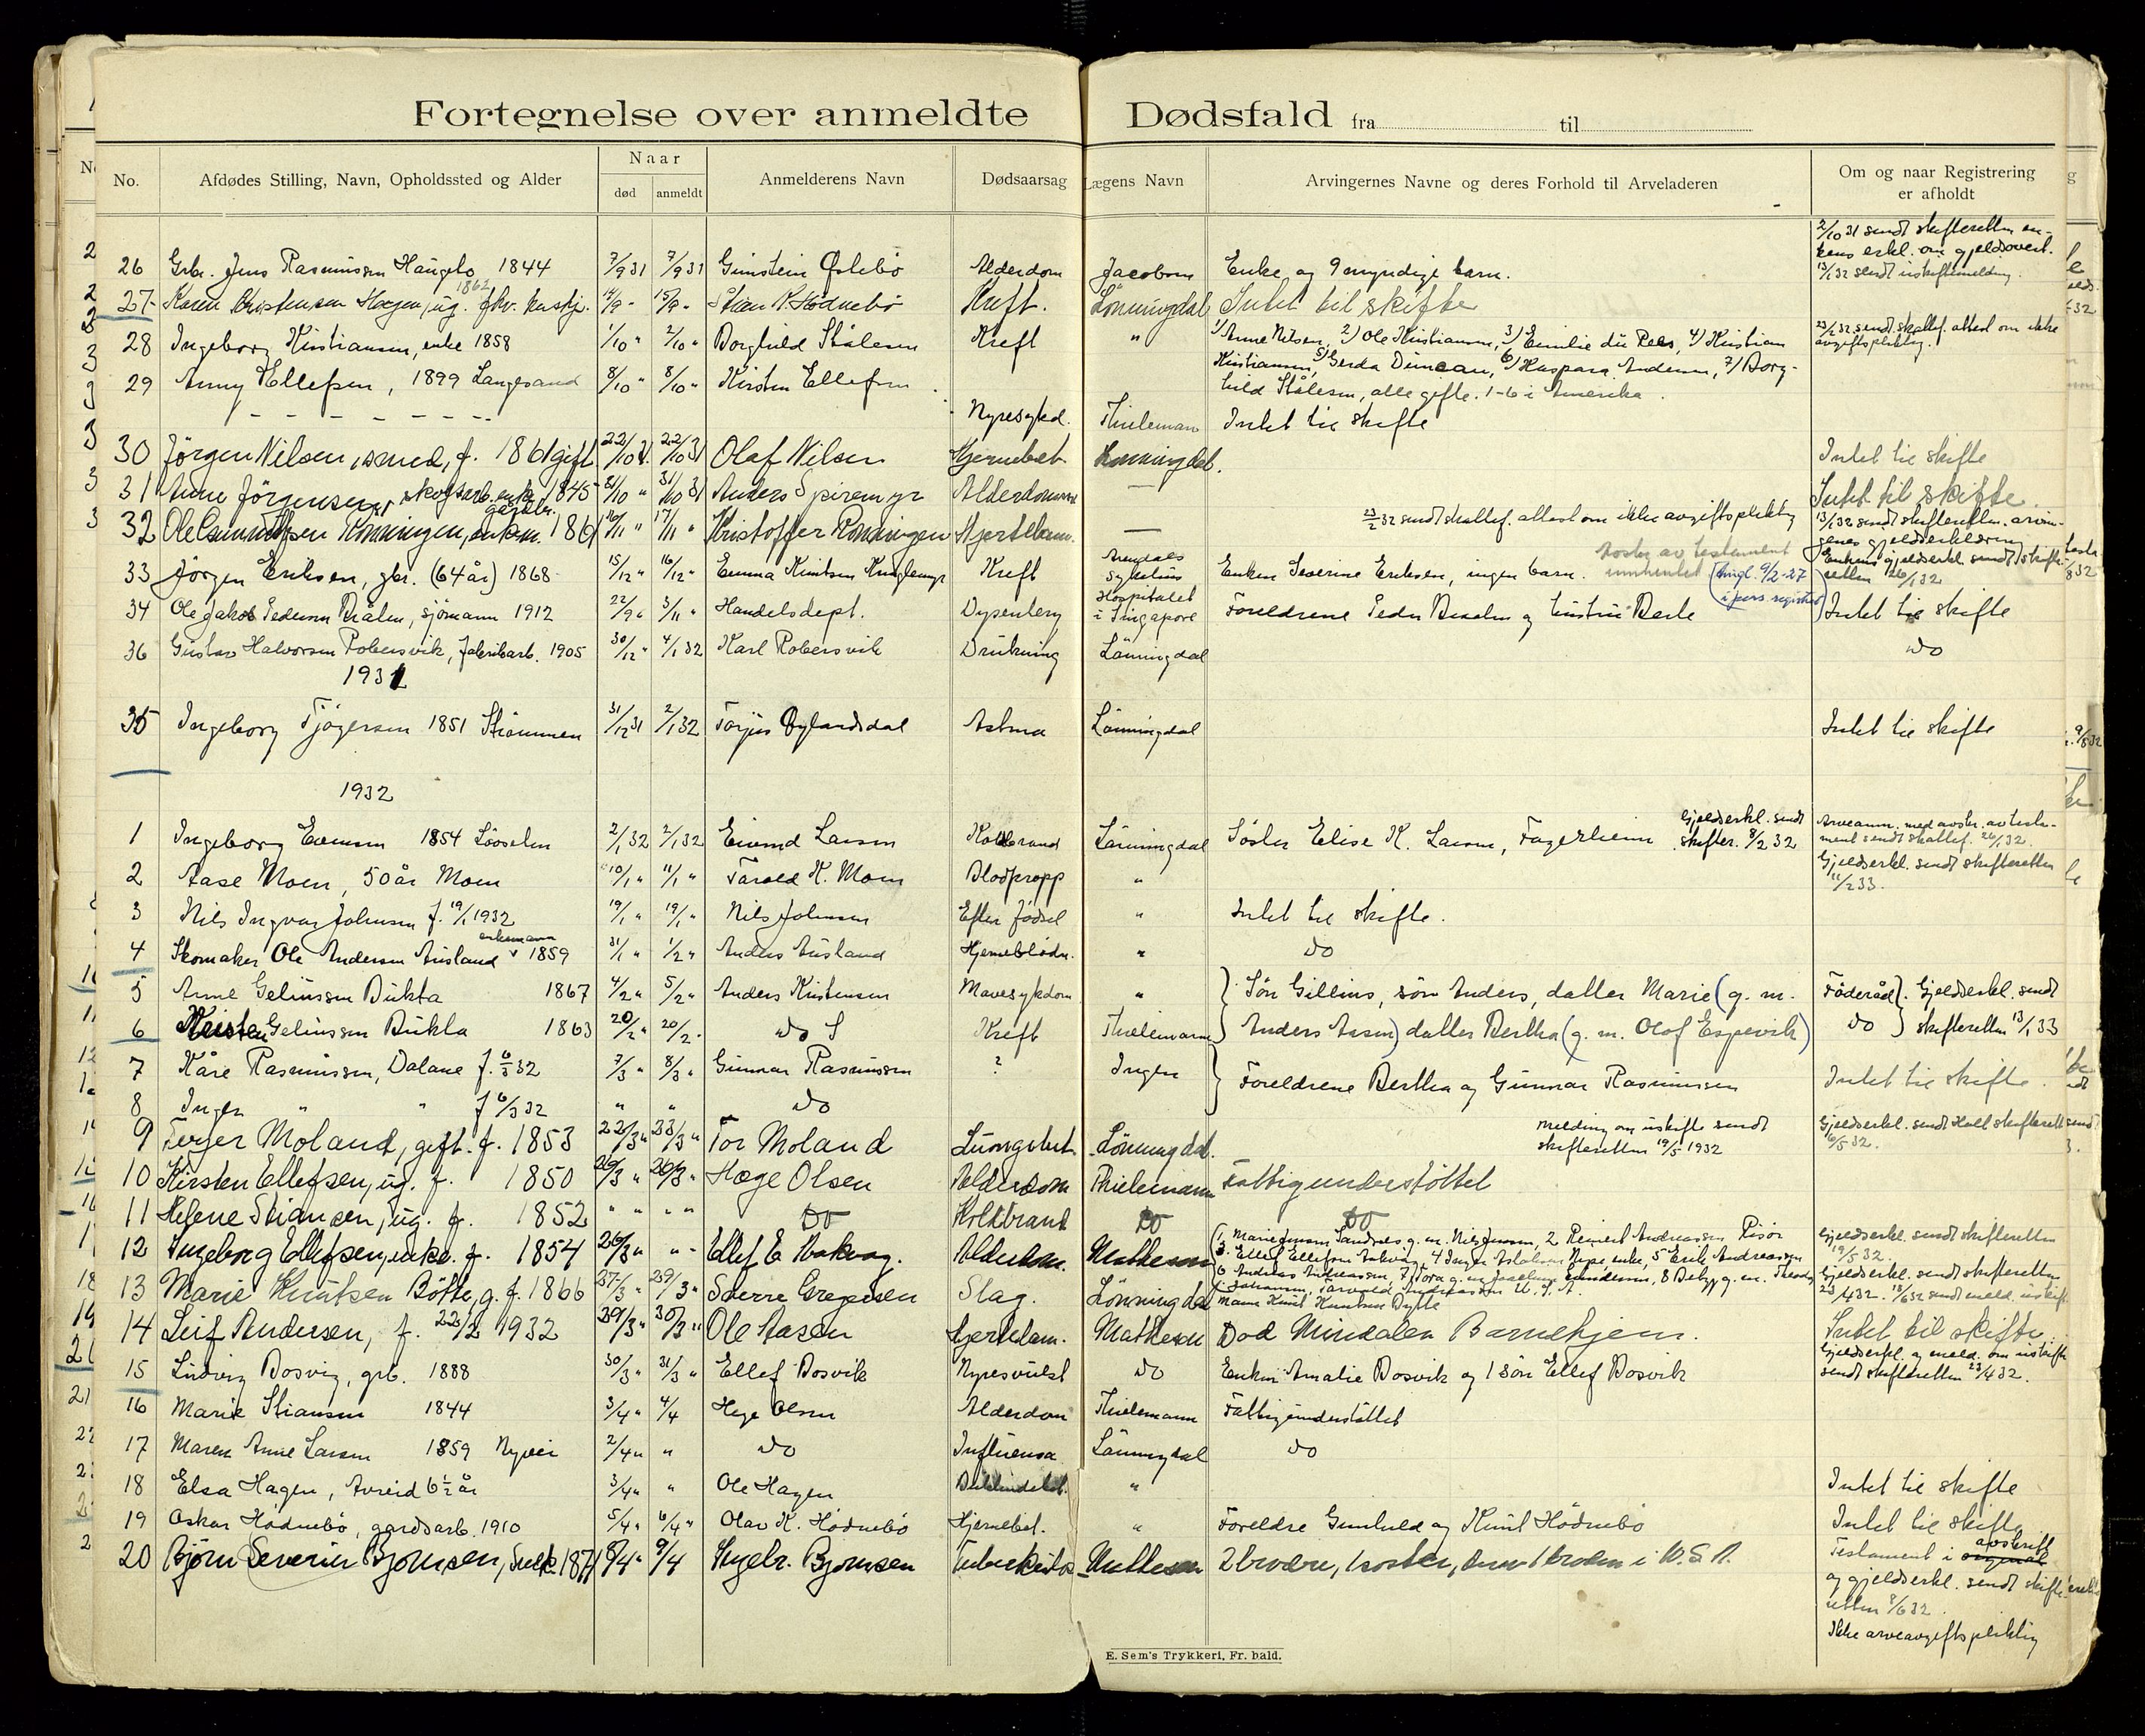 Fortegnelse over anmeldte Dødsfald fra til
No. Afdødes Stilling, Navn, Opholdssted og Alder Naar død anmeldt Anmelderens Navn Dødsaarsag Lægens Navn Arvingernes Navne og deres Forhold til Arveladeren Om og naar Registrering er afholdt
2/10 31 sendt skifteretten en-
kens erkl. om gjeldsovert.
26 Grbr. Jens Rasmussen Haugbo 1844 7/9 31 7/9 31 Gunstein Øslebø Alderdom Jacobsen Enke og 9 myndige barn. 13/1 32 sendt uskiftemelding.
1862
27 Karen Kristensen Hagen, ug. fhv. 14/9 " 15/9 " Stian K. Hødnebø Kreft. Lönningdal Intet til skifte
28 Ingeborg Kristiansen, enke 1858 1/10 " 2/10 " Borghild Stålesen Kreft " 1) Anne Nilsen, 2) Ole Kristiansen, 3) Emilie du Pees, 4) Kristian 23/2 32 sendt skattef. attest om ikke
avgiftspliktig.
29 Anny Ellefsen, 1899 Langesand 8/10 " 8/10 " Kirsten Ellefsen Kristiansen, 5) Gerda Duncan, 6) Kaspara Andersen, 7) Borg-
hild Stålesen, alle gifte. 1-6 i Amerika.
Nyresykd. Thielemann Intet til skifte
30 Jörgen Nilsen, smed, f. 1861 gift 22/10 31 22/10 31 Olaf Nilsen Hjernebet. Lönningdal. Intet til skifte
31 Anne Jörgensen, skogsarb. enke 1845 31/10 " 31/10 31 Anders Spiremyr Alderdom — Intet til skifte.
32 Ole Rönningen, enkem. 186 16/11 " 17/11 " Kristoffer Rönningen Hjertelam. — 23/2 32 sendt skattef. attest om ikke avgiftspliktig 13/1 32 sendt skifteretten arvin-
genes gjeldserklæring
33 Jörgen Eriksen, gbr. (64 år) 1868 15/12 " 16/12 " Emma Knutsen Kreft Arendals Sykehus Enken Severine Eriksen, ingen barn. Avskr. av testament innhentet (tingl. 9/2-27 i pers. registret) Enkens gjeldserkl. sendt skifte-
retten 26/1 32
34 Ole Jakob Pedersen Bråten, sjömann 1912 22/9 " 3/11 " Handelsdept. Dysentery Hospitalet i Singapore Foreldrene Peder og hustru Berte Intet til skifte
36 Gustav Halvorsen Robersvik, fabrikarb. 1905 30/12 " 4/1 32 Karl Robersvik Drukning Lönningdal do
1931
35 Ingeborg Tjögersen 1851 Strömmen 31/12 31 2/1 32 Torjus Øylandsdal Astma Lönningdal Intet til skifte
1932
1 Ingeborg Evensen 1854 2/1 32 2/1 32 Eivind Larsen Koldbrand Lönningdal Söster Elise K. Larsen, Fagerheim Gjeldserkl. sendt skifter. 8/2 32 Arveanm. med avskr. av testa-
ment sendt skattef. 26/1 32.
2 Aase Moen, 50 år Moen 10/1 " 11/1 " Tarald K. Moen Blodpropp " Gjeldserkl. sendt skifteretten
11/2 33.
3 Nils Ingvar Johnsen f. 19/1 1932 19/1 " 19/1 " Nils Johnsen Efter fødsel " Intet til skifte.
enkemann
4 Skomaker Ole Andersen Ausland 1859 31/1 " 1/2 " Anders Ausland Hjerneblødn. " do
5 Anne Geliussen Bukta 1867 4/2 " 5/2 " Anders Kristensen Mavesykdom " Sön Gillius, sön Anders, datter Marie (g. m. Föderåd. Gjeldserkl. sendt
6 Kristen Geliussen Bukta 1863 20/2 " 20/2 " do Kreft Thielemann Anders Aasen) datter Bertha (g. m. Olaf Espevik) do skifteretten 13/1 33
7 Kåre Rasmussen, Dalane f. 6/3 32 7/3 " 8/3 " Gunnar Rasmussen ? Ingen Foreldrene Bertha og Gunnar Rasmussen Intet til skifte.
8 Inger " " f 6/3 32 " " do
9 Terjer Moland, gift. f. 1853 22/3 " 23/3 " Tor Moland Lungebet. Lönningdal. Melding om uskifte sendt
skifteretten 19/5 1932 Gjeldserkl. sendt Holt skifterett
6/5 32.
10 Kirsten Ellefsen, ug. f. 1850 26/3 " 26/3 " Hæge Olsen Alderdom Thielemann Fattigunderstöttet
11 Helene Stiansen, ug. f. 1852 " " " " Do Koldbrand Do Do
12 Ingeborg Ellefsen, enke. f. 1854 26/3 " " " Ellef E. Alderdom. Mathesen 1. Marie Jensen Sandnes g. m. Nils Jensen, 2 Reinert Andreassen Risör Gjeldserkl. sendt skifteretten
19/5 32.
3. Ellef Ellefsen, 4 Inger enke, 5 Erik Andreassen
13 Marie Knutsen Bötte, g. f. 1866 27/3 " 29/3 " Sverre Gregersen Slag. Lönningdal 6 Andreas Andreassen, 7 Tora g. m. Gundersen, 8 Betzy g. m. Gjeldserkl. sendt skifteretten
23/4 32. 18/6 32 sendt meld. uskift
Mann Knut Knutsen Bytte
14 Leif Andersen, f. 22/2 1932 29/3 " 30/3 " Ole Aasen Hjertelam. Mathesen Död Mindalen Barnehjem. Intet til skifte.
15 Ludvig Bosvig, grb. 1888 30/3 " 31/3 " Ellef Bosvik Nyresvulst do Enken Amalie Bosvik og 1 sön Ellef Bosvik Gjeldserkl. og meld. om uskifte
sendt skifteretten 23/4 32.
16 Marie Stiansen 1844 3/4 " 4/4 Hege Olsen Alderdom Thielemann Fattigunderstöttet
17 Maren Anne Larsen 1859 Nyvei 2/4 " " do Influensa Lönningdal do
18 Elsa Hagen, Avreid 6 1/2 år 3/4 " " Ole Hagen " Intet til skifte
19 Oskar Hödnebö, gardsarb. 1910 5/4 " 6/4 " Olav K. Hödnebö Hjernebet. " Foreldre Gunhild og Knut Hödnebö Intet til skifte
20 Bjørn Severin Bjornsen, 187 8/4 " 9/4 Ingebr. Bjornsen Tuberkulos Mathesen 2 brödre, 1 söster, 1 broder i U.S.A. Testament i avskrift
og gjeldserkl. sendt skifte-
retten 8/6 32.
Ikke arveavgiftspliktig
E. Sem's Trykkeri, Fr. hald.